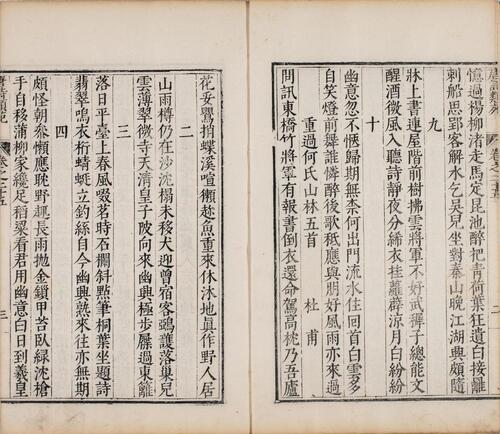 憶過楊柳渚走馬定昆池醉把青荷葉狂遺白接䍦
刺船思郢客解水乞吳兒坐對秦山晚江湖興頗隨
九
牀上書連屋階前樹拂雲將軍不好武稚子總能文
醒酒微風入聽詩靜夜分絺衣挂蘿薜涼月白紛紛
十
幽意忽不愜歸期無柰何出門流水住回首白雲多
自笑燈前舞誰憐醉後歌秪應與朋好風雨亦來過
重過何氏山林五首 杜甫
問訊東橋竹將軍有報書倒衣還命駕高枕乃吾廬
花妥鶯捎蝶溪喧獺趂魚重來休沐地眞作野人居
二
山雨樽仍在沙沈榻未移犬迎曾宿客鴉護落巢兒
雲薄翠微寺天清皇子陂向來幽興極步屧過東籬
三
落日平臺上春風啜茗時石欄斜點筆桐葉坐題詩
翡翠鳴衣桁蜻蜓立釣絲自今幽興熟來往亦無期
四
頗怪朝參懶應耽野趣長雨拋金鎖甲苔臥綠沈槍
手自移蒲柳家纔足稻粱看君用幽意白日到羲皇
三